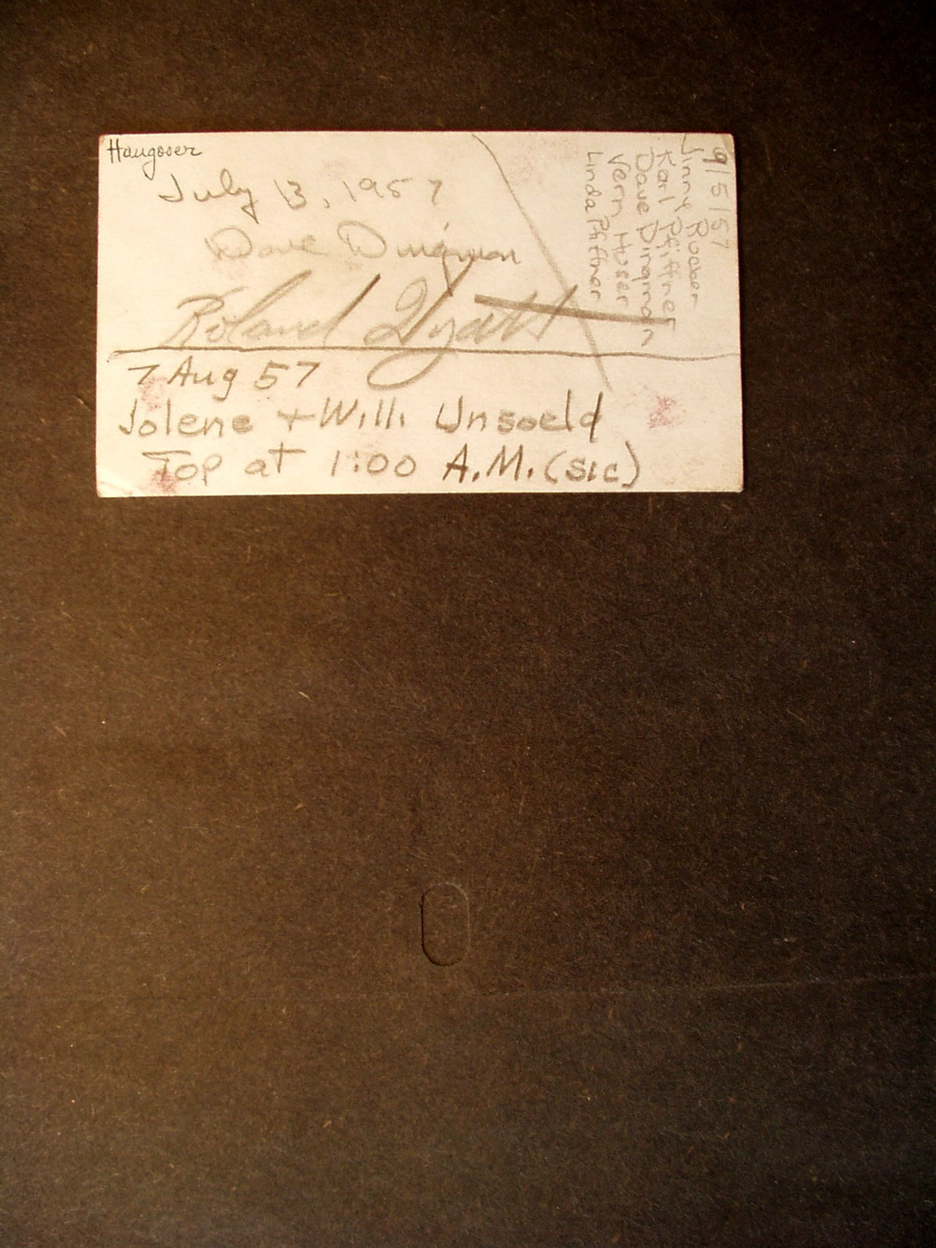 Hangover
July 13, 1957
Dave Dingman
Roland Wyatt
7 Aug 57
Jolene + Willi Unsoeld
Top at 1:00 A.M. (sic)
9/5/57
Jinny Rucker
Karl Pfiffner
Dave Dingman
Vern Huser
Linda Pfiffner